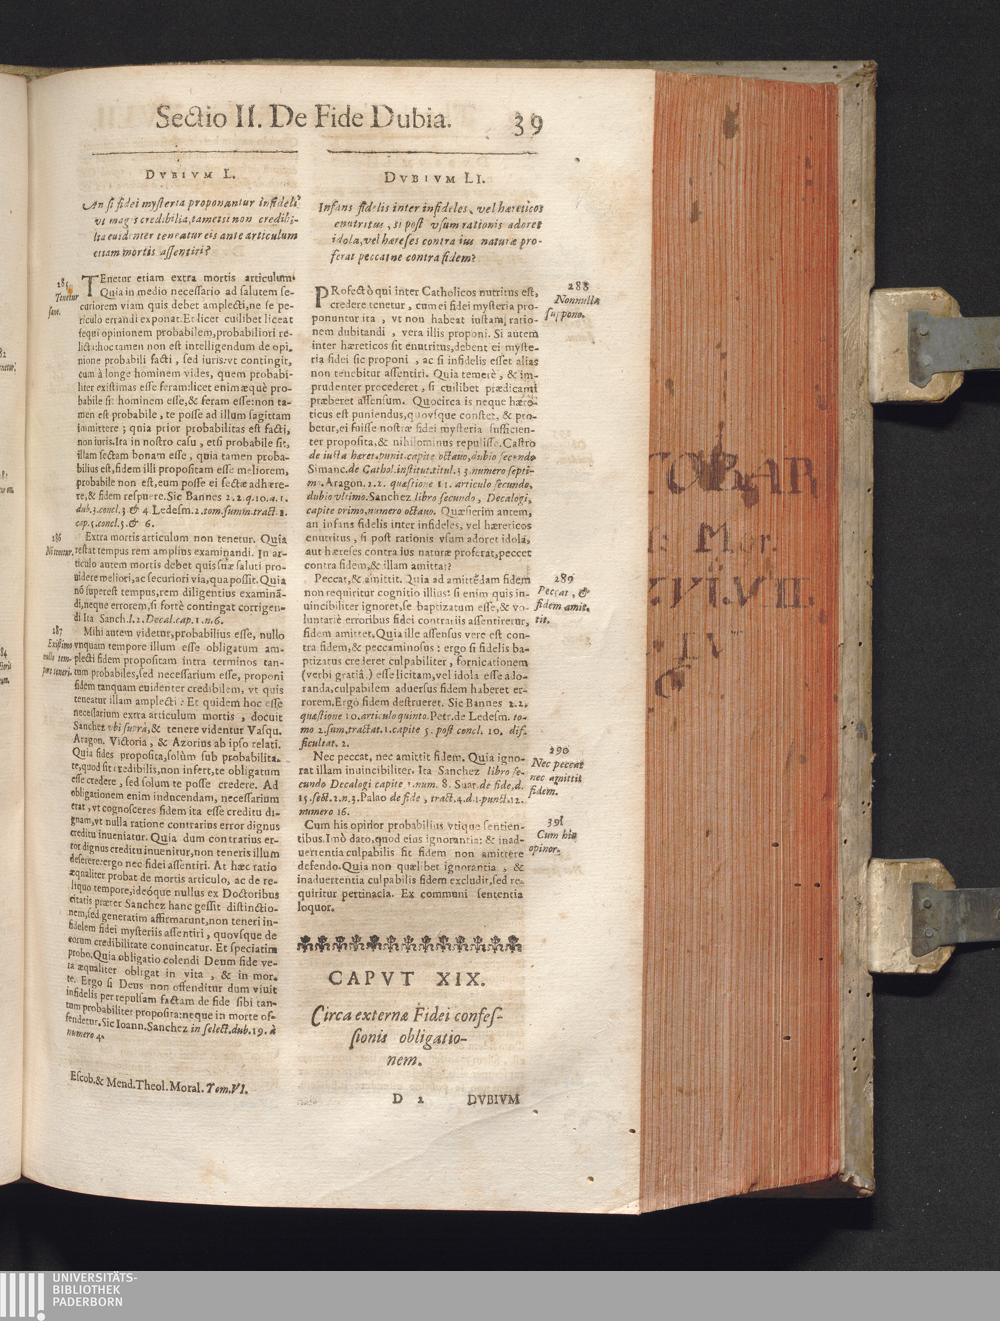 Sectio II. De Fide Dubia. 39
DVBIVM L.
An si fidei mysteria proponantur infideli
vt magis credibilia, tametsi non credibi-
lia euidenter teneatur eis ante articulum
etiam mortis assentiri?
285
Tenetur
sent.
TEnetur etiam extra mortis articulum.
Quia in medio necessario ad salutem se-
curiorem viam quis debet amplecti, ne se pe-
riculo errandi exponat. Et licet cuilibet liceat
sequi opinionem probabilem, probabiliori re-
licta: hoc tamen non est intelligendum de opi-
nione probabili facti, sed iuris: vt contingit,
cum à longe hominem vides, quem probabi-
liter existimas esse feram: licet enim æquè pro-
babile sit hominem esse, & feram esse: non ta-
men est probabile, te posse ad illum sagittam
immittere; quia prior probabilitas est facti,
non iuris. Ita in nostro casu, etsi probabile sit,
illam sectam bonam esse, quia tamen proba-
bilius est, fidem illi propositam esse meliorem,
probabile non est, eum posse ei sectæ adhære-
re, & fidem respuere. Sic Bannes 2.2.q.10.a.1.
dub.3.concl.3 & 4. Ledesm. 2.tom.summ.tract.1.
cap.5.concl.5.& 6.
286
Nitetur.
Extra mortis articulum non tenetur. Quia
restat tempus rem amplius examinandi. In ar-
ticulo autem mortis debet quis suæ saluti pro-
uidere meliori, ac securiori via, qua possit. Quia
nõ superest tempus, rem diligentius examinã-
di, neque errorem, si fortè contingat corrigen-
di Ita Sanch. l.2. Decal.cap.1.n.6.
287
Existimo
nullo tem-
pore teneri.
Mihi autem videtur, probabilius esse, nullo
vnquam tempore illum esse obligatum am-
plecti fidem propositam intra terminos tan-
tum probabiles, sed necessarium esse, proponi
fidem tanquam euidenter credibilem, vt quis
teneatur illam amplecti: Et quidem hoc esse
necessarium extra articulum mortis, docuit
Sanchez vbi suprà, & tenere videntur Vasqu.
Aragon. Victoria, & Azorius ab ipso relati.
Quia fides proposita, solùm sub probabilita-
te, quod sit credibilis, non infert, te obligatum
esse credere, sed solum te posse credere. Ad
obligationem enim inducendam, necessarium
erat, vt cognosceres fidem ita esse creditu di-
gnam, vt nulla ratione contrarius error dignus
creditu inueniatur. Quia dum contrarius er-
ror dignus creditu inuenitur, non teneris illum
deserere: ergo nec fidei assentiri. At hæc ratio
æqualiter probat de mortis articulo, ac de re-
liquo tempore, ideóque nullus ex Doctoribus
citatis præter Sanchez hanc gessit distinctio-
nem, sed generatim affirmarunt, non teneri in-
fidelem fidei mysteriis assentiri, quovsque de
eorum credibilitate conuincatur. Et speciatim
probo. Quia obligatio colendi Deum fide ve-
ra æqualiter obligat in vita, & in mor-
te. Ergo si Deus non offenditur dum viuit
infidelis per repulsam factam de fide sibi tan-
tum probabiliter proposita: neque in morte of-
fendetur. Sic Ioann. Sanchez in select.dub.19. à
numero 4.
Escob. & Mend. Theol. Moral. Tom.VI.
DVBIVM LI.
Infans fidelis inter infideles, vel hæreticos
enutritus, si post vsum rationis adoret
idola, vel hæreses contra ius naturæ pro-
ferat peccatne contra fidem?
288
Nonnulla
suppono.
PRofectò qui inter Catholicos nutritus est,
credere tenetur, cum ei fidei mysteria pro-
ponuntur ita, vt non habeat iustam ratio-
nem dubitandi, vera illis proponi. Si autem
inter hæreticos sit enutritus, debent ei myste-
ria fidei sic proponi, ac si infidelis esset alias
non tenebitur assentiri. Quia temerè, & im-
prudenter procederet, si cuilibet prædicanti
præberet assensum. Quocirca is neque hære-
ticus est puniendus, quovsque constet, & pro-
betur, ei fuisse nostræ fidei mysteria sufficien-
ter proposita, & nihilominus repulisse. Castro
de iusta hæret.punit.capite octauo, dubio secundo
Simanc. de Cathol.institut.titul.33.numero septi-
mo. Aragon. 2.2. quæstione 11. articulo secundo,
dubio vltimo. Sanchez libro secundo, Decalogi,
capite primo, numero octauo. Quæsierim autem,
an infans fidelis inter infideles, vel hæreticos
enutritus, si post rationis vsum adoret idola,
aut hæreses contra ius naturæ proferat, peccet
contra fidem, & illam amittat?
289
Peccat, &
fidem amit-
tit.
Peccat, & amittit. Quia ad amittẽdam fidem
non requiritur cognitio illius: si enim quis in-
uincibiliter ignoret, se baptizatum esse, & vo-
luntariè erroribus fidei contrariis assentiretur,
fidem amittet. Quia ille assensus vere est con-
tra fidem, & peccaminosus: ergo si fidelis ba-
ptizatus crederet culpabiliter, fornicationem
(verbi gratiâ) esse licitam, vel idola esse ado-
randa, culpabilem aduersus fidem haberet er-
rorem. Ergò fidem destrueret. Sic Bannes 2.2.
quæstione 10. articulo quinto. Petr. de Ledesm. to-
mo 2.sum.tractat.1.capite 5. post concl. 10. dif-
ficultat. 2.
290
Nec peccat
nec amittit
fidem.
Nec peccat, nec amittit fidem. Quia igno-
rat illam inuincibiliter. Ita Sanchez libro se-
cundo Decalogi capite 1.num. 8. Suar. de fide, d.
15.sect.2.n.3. Palao de fide, tract.4.d.1.punct.12.
numero 16.
391
Cum his
opinor.
Cum his opinor probabilius vtique sentien-
tibus. Imò dato, quod eius ignorantia: & inad-
uertentia culpabilis sit fidem non amittere
defendo. Quia non quælibet ignorantia, &
inaduertentia culpabilis fidem excludit, sed re-
quiritur pertinacia. Ex communi sententia
loquor.
CAPVT XIX.
Circa externæ Fidei confes-
sionis obligatio-
nem.
D 2 DVBIVM
UNIVERSITÄTS-
BIBLIOTHEK
PADERBORN